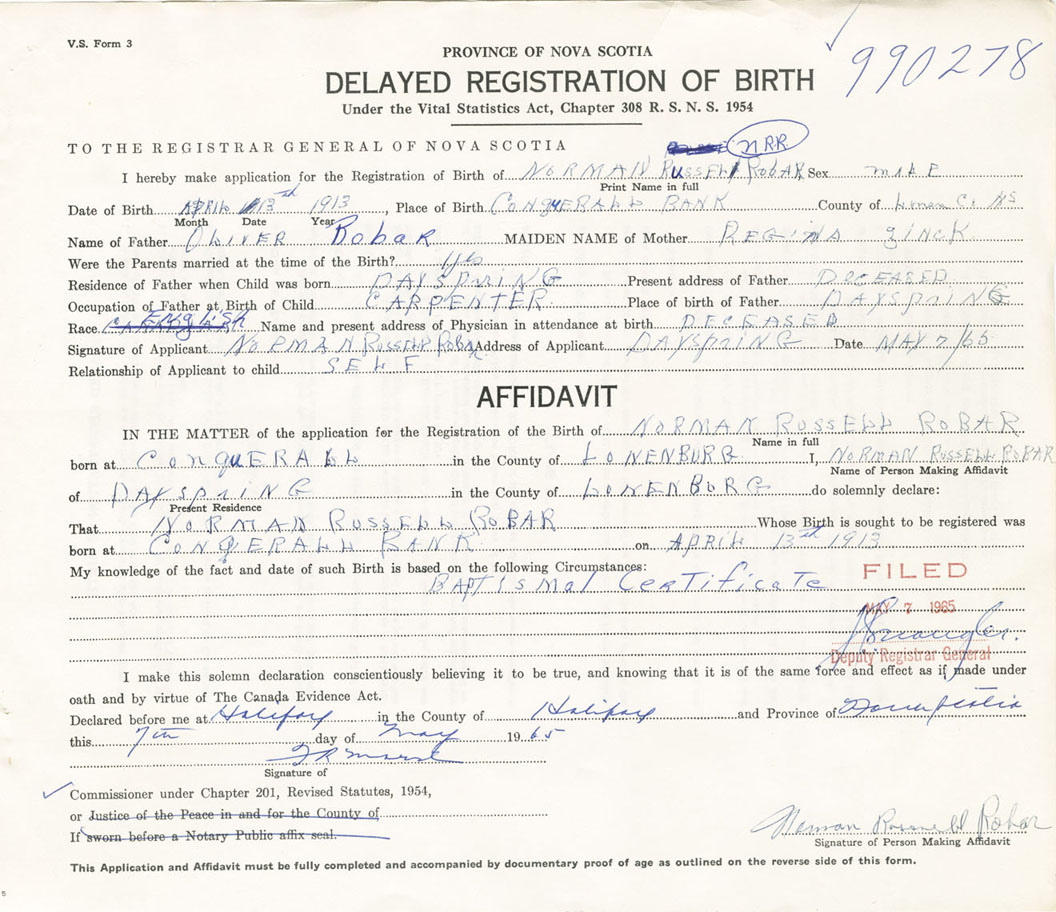 V.S. Form 3
990278
PROVINCE OF NOVA SCOTIA
DELAYED REGISTRATION OF BIRTH
Under the Vital Statistics Act, Chapter 308 R. S. N. S. 1954
NRR
TO THE REGISTRAR GENERAL OF NOVA SCOTIA
I hereby make application for the Registration of Birth of NORMAN RUSSELL ROBAR Sex MALE
Print Name in full
Date of Birth APRIL 13th 1913, Place of Birth CONQUERALL BANK County of Lunen Co. NS
Month Date Year
Name of Father OLIVER Robar MAIDEN NAME of Mother REGINA ZINCK
Were the Parents married at the time of the Birth? yes
Residence of Father when Child was born DAYSPRING Present address of Father DECEASED
Occupation of Father at Birth of Child CARPENTER Place of birth of Father DAYSPRING
Race English Name and present address of Physician in attendance at birth DECEASED
Signature of Applicant NORMAN RUSSELL ROBAR Address of Applicant DAYSPRING Date MAY 7/65
Relationship of Applicant to child SELF
AFFIDAVIT
IN THE MATTER of the application for the Registration of the Birth of NORMAN RUSSELL ROBAR
Name in full
born at CONQUERALL in the County of LUNENBURG I, NORMAN RUSSELL ROBAR
Name of Person Making Affidavit
of DAYSPRING in the County of LUNENBURG do solemnly declare:
Present Residence
That NORMAN RUSSELL ROBAR Whose Birth is sought to be registered was
born at CONQERALL BANK on APRIL 13th 1913
My knowledge of the fact and date of such Birth is based on the following Circumstances:
Baptismal Certificate
FILED
MAY 7 1965
Deputy Registrar General
I make this solemn declaration conscientiously believing it to be true, and knowing that it is of the same force and effect as if made under
oath and by virtue of The Canada Evidence Act.
Declared before me at Halifax in the County of Halifax and Province of Nova Scotia
this 7th day of May 1965
Signature of
Commissioner under Chapter 201, Revised Statutes, 1954,
or Justice of the Peace in and for the County of
If sworn before a Notary Public affix seal.
Norman Russell Robar
Signature of Person Making Affidavit
This Application and Affidavit must be fully completed and accompanied by documentary proof of age as outlined on the reverse side of this form.
5